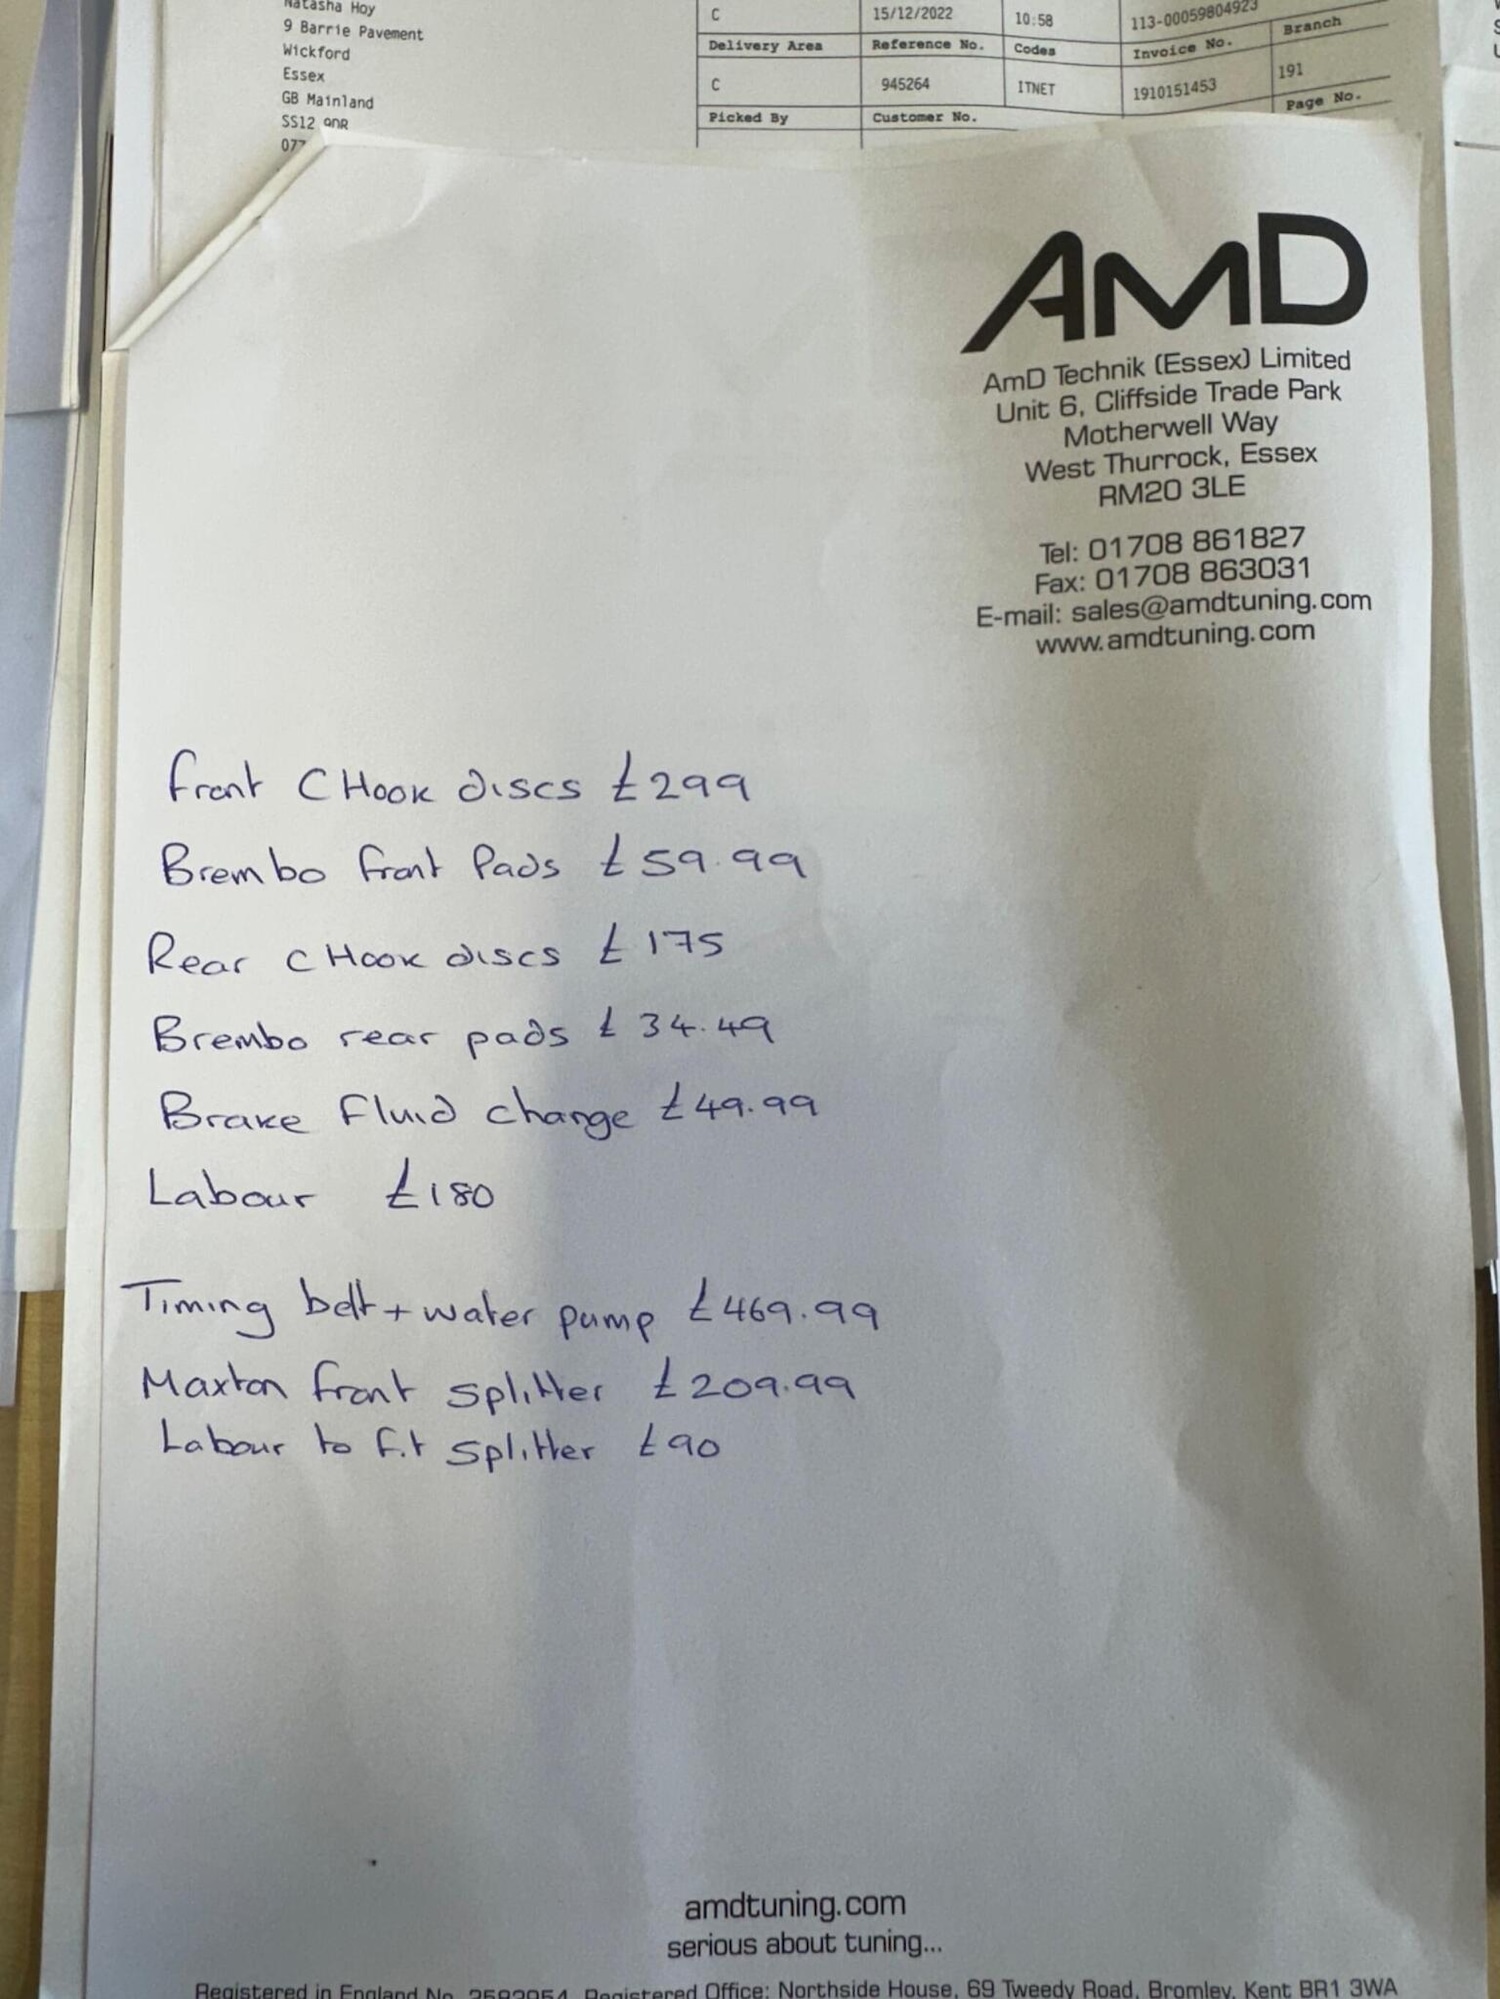 Natasha Hoy
9 Barrie Pavement
Wickford
Essex
GB Mainland
SS12
C 15/12/2022 10:58 113-00059804923
Delivery Area Reference No. Codes Invoice No. Branch
C 945264 ITNET 1910151453 191
Picked By Customer No. Page No.
AMD
AmD Technik (Essex) Limited
Unit 6, Cliffside Trade Park
Motherwell Way
West Thurrock, Essex
RM20 3LE
Tel: 01708 861827
Fax: 01708 863031
E-mail: sales@amdtuning.com
www.amdtuning.com
Front CHook discs £299
Brembo front Pads £59.99
Rear CHook discs £175
Brembo rear pads £34.49
Brake Fluid change £49.99
Labour £180
Timing belt + water pump £469.99
Maxton front splitter £209.99
Labour to fit splitter £90
amdtuning.com
serious about tuning...
Registered in England No. Registered Office: Northside House, 69 Tweedy Road, Bromley, Kent BR1 3WA